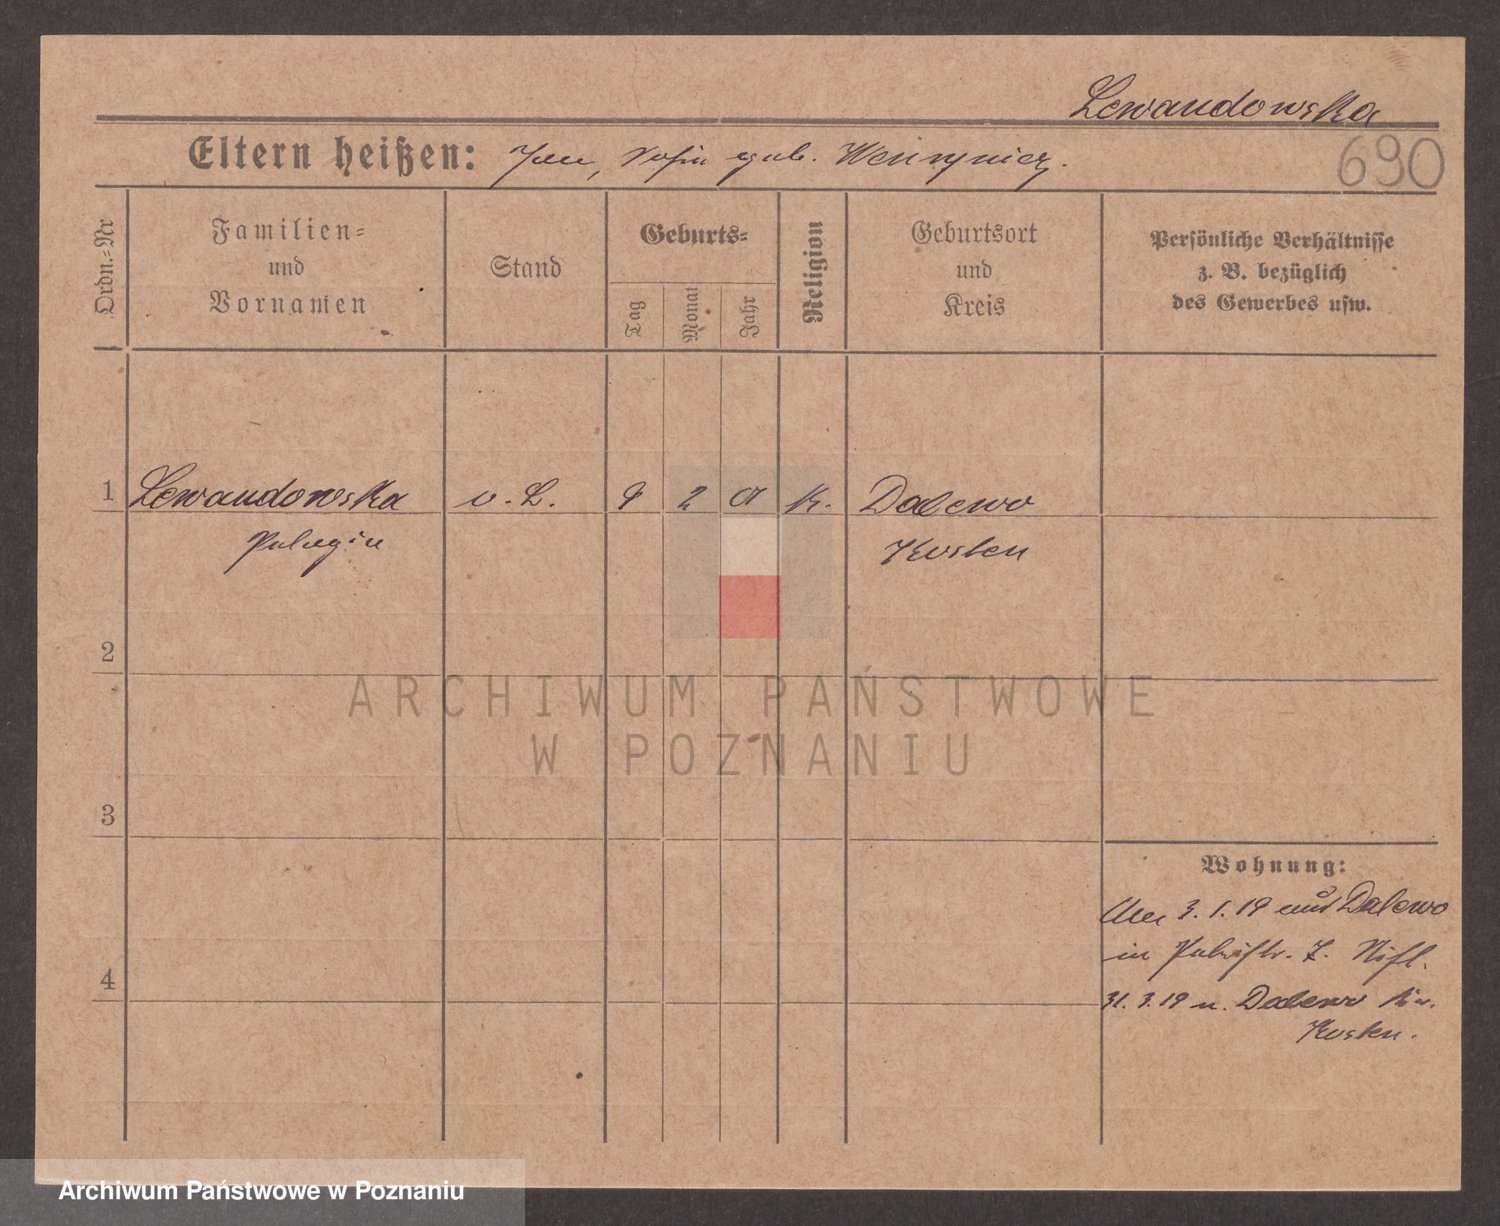 Lewandowska
Eltern heißen: Jan, Sofia geb.
690
Ordn.-Nr
Familien-
und
Vornamen
Stand
Geburts-
Tag
Monat
Jahr
Religion
Geburtsort
und
Kreis
Persönliche Verhältnisse
z. B. bezüglich
des Gewerbes usw.
1 Lewandowska o. L. 9 2 01 K. Dalewo
Pelagia Kosten
2
3
4
ARCHIWUM PAŃSTWOWE
W POZNANIU
Wohnung:
3.1.19 aus Dalewo
in
31.3.19 n. Dalewo Kr.
Kosten.
Archiwum Państwowe w Poznaniu